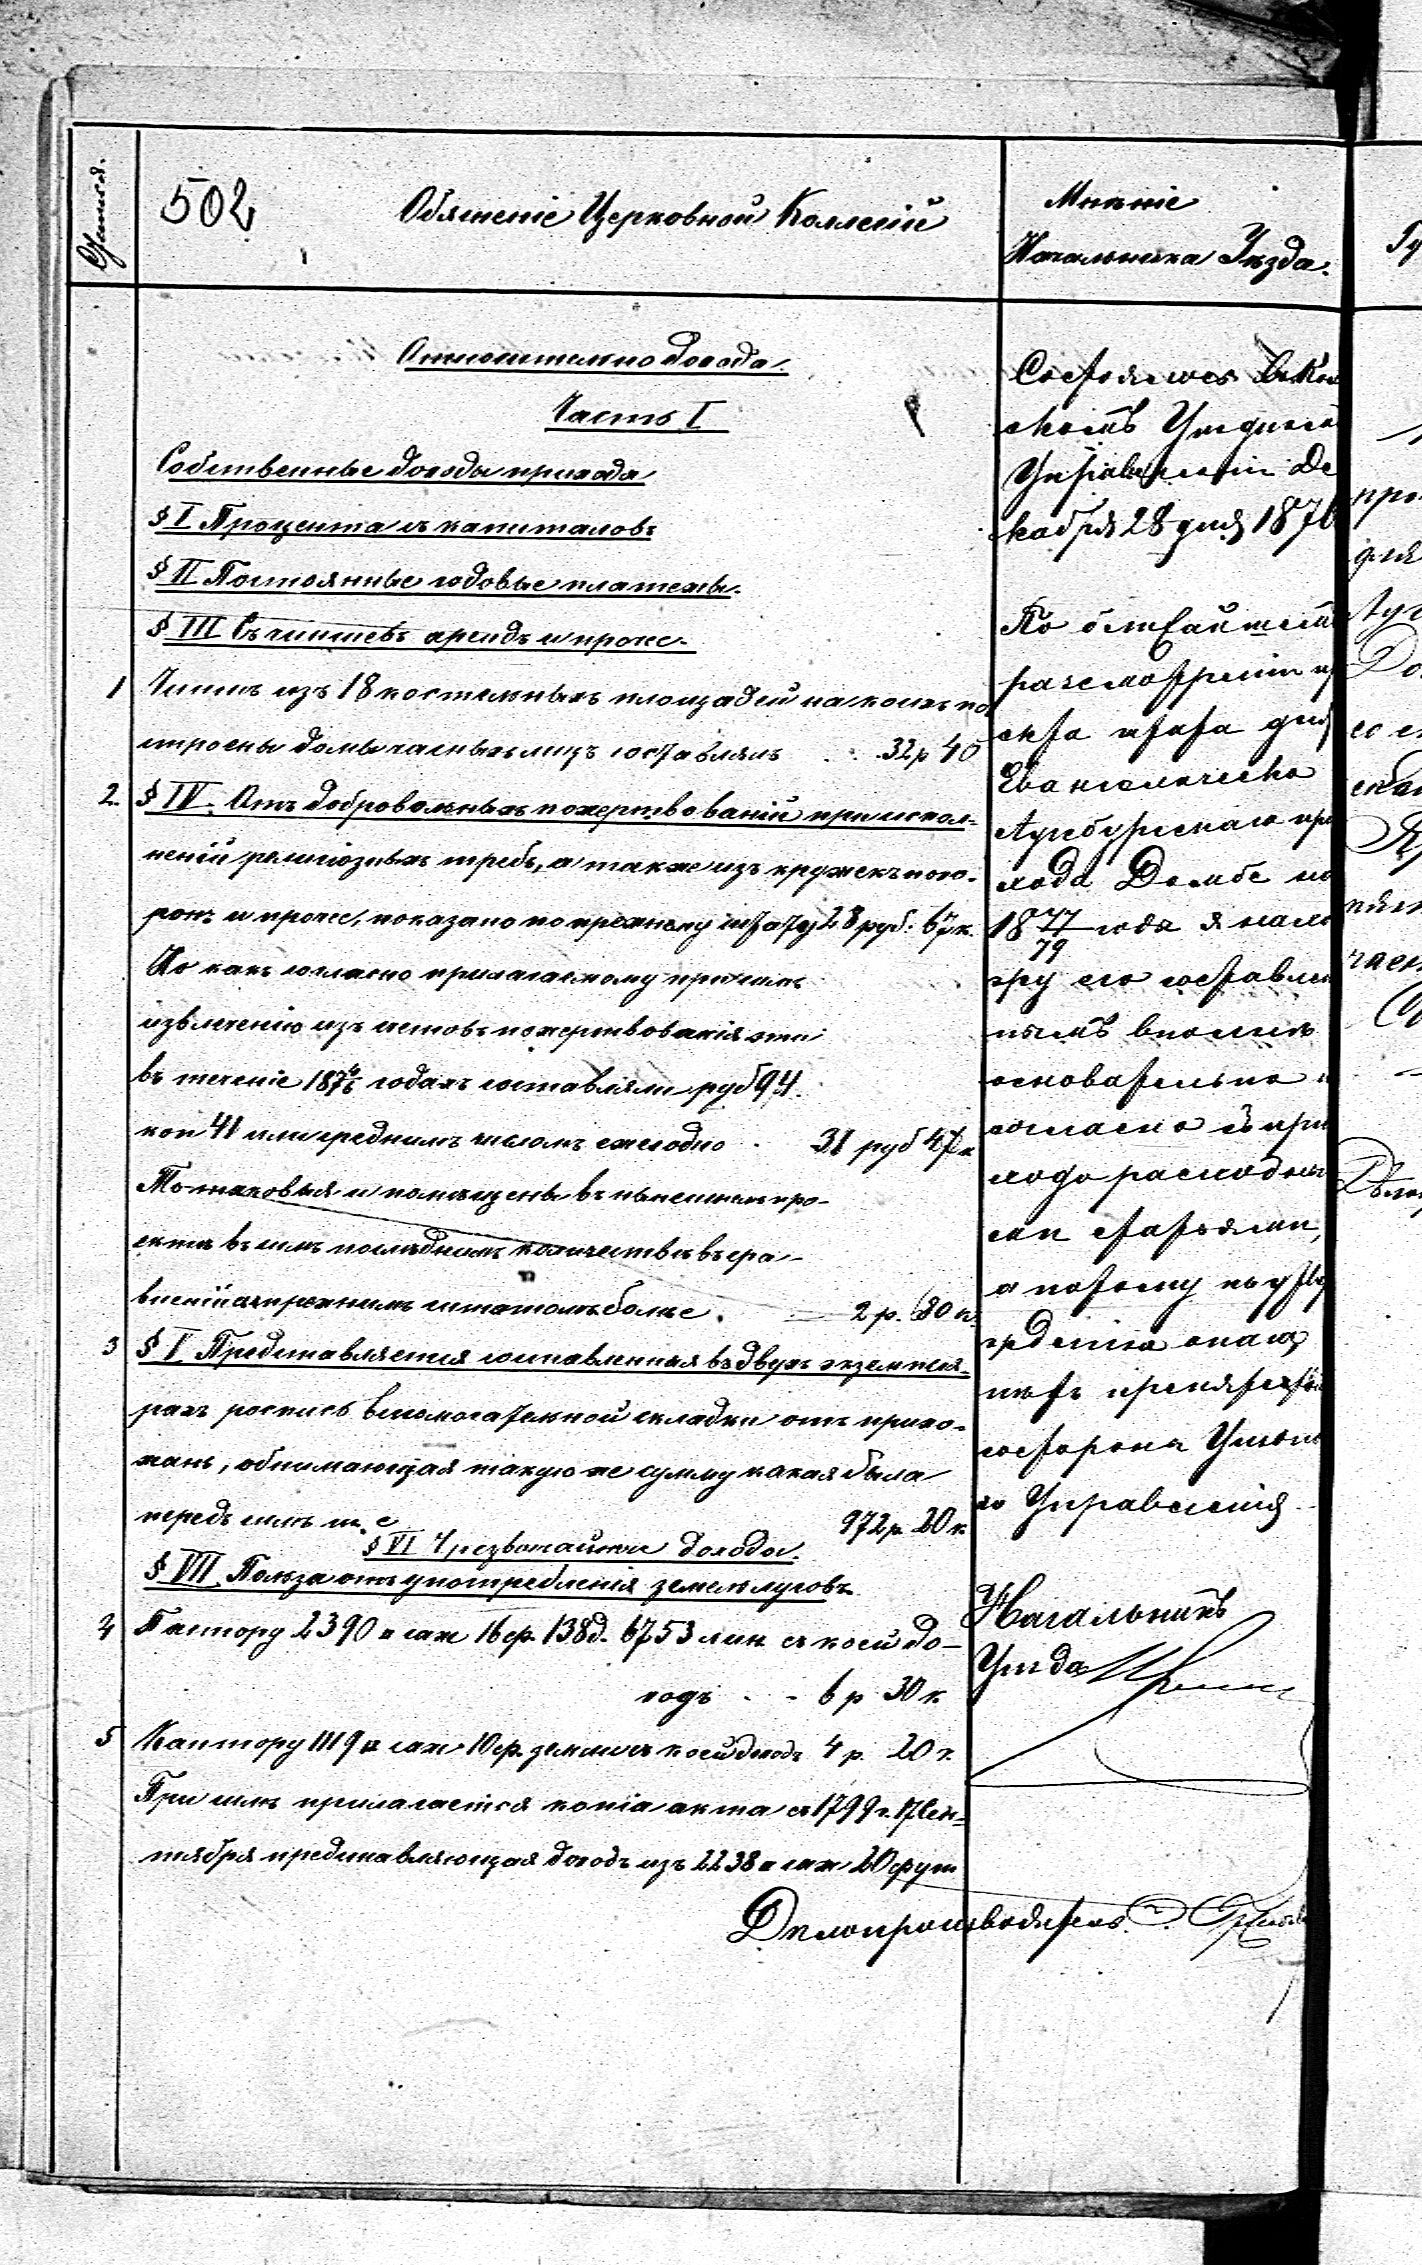 502
Обясненіе Церковной Коллегіи
Мнѣніе
Начальника Уѣзда.
Относительно дохода.
Часть I
Собственные доходы прихода
§ I Процента съ капиталовъ
§ II Постоянные годовые платежы.
§ III Съ чиншевъ арендъ и проче.
1 Чиншъ изъ 18 костельныхъ площадей на коихъ по
строены домы частныхъ лицъ составляетъ 32 р 40
2. § IV. Отъ добровольныхъ пожертвованій при испол-
неніи религіозныхъ требъ, а также изъ кружекъ похо-
ронъ и проче, показано по прежнему штату 28 руб. 67 к.
Но какъ согласно прилагаемому при семъ
извлеченію изъ счетовъ пожертвованія эти
въ теченіе 187 4/6 годахъ составляли руб 94.
коп 41 или среднимъ числомъ ежегодно 31 руб 47 к
То таковыя и помѣщены въ нынешнемъ про-
ектѣ въ семъ послѣднемъ количествѣ въ сра-
вненіи съ прежнимъ штатомъ болѣе. 2 р. 80 к.
3 § V Представляется составленная въ двухъ экземпля-
рахъ роспись вспомогательной складки отъ прихо-
жанъ, обнимающая такую же сумму какая была
передъ симъ т. е 972 р. 20 к
§ VI Чрезвычайные доходы.
§ VII. Польза отъ употребленія земель луговъ.
4 Пастору 2390 саж 16 ср. 138 д. 6753 лин. съ коей до-
ходъ - - 6 р 30 к.
5 Кантору 1119 саж 10 ср. земли съ коей доходъ 4 р. 20 к.
При семъ прилагается копія акта съ 1799 г. 17 Сен-
тября представляющая доходъ изъ 2238 саж 20 фут
Состоялось въ Кон
скомъ Уѣздномъ
Управленіи Де
кабря 28 дня 1876
По ближайшемъ
разсмотреніи пр
екта штата для
Евангелическо
Аугсбургскаго при
хода Домбе на
18 77/79 года я нахо
жу его составлен
нымъ вполнѣ
основательно и
согласно съ при
ходо расходны
ми статьями,
а потому къ утве
ржденію онаго
нѣтъ препятствій
со стороны Уѣздна
го Управленія
Начальникъ
Уѣзда
Дѣлопроизводитель